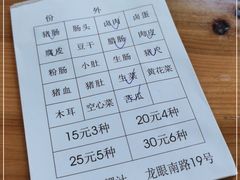 份 外
猪肠 肠头 卤肉 卤蛋
腐皮 豆干 腊肠 肉皮
粉肠 小肚 生肠 猪尺
猪血 猪肚 生菜 黄花菜
木耳 空心菜 苦瓜
15元3种 20元4种
25元5种 30元6种
龙眼南路19号